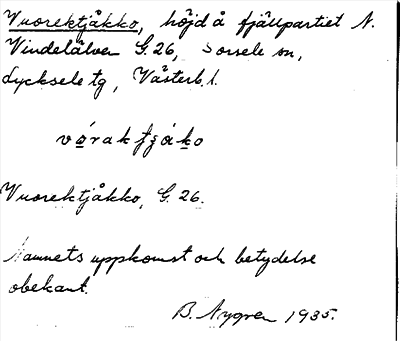 Vuorektjåkko, höjd å fjällpartiet N.
Vindelälven G. 26, Sorsele sn,
Lycksele tg, Västerb. l.
vóraktjåko
Vuorektjåkko, G. 26.
Namnets uppkomst och betydelse
obekant.
B. Nygren 1935.